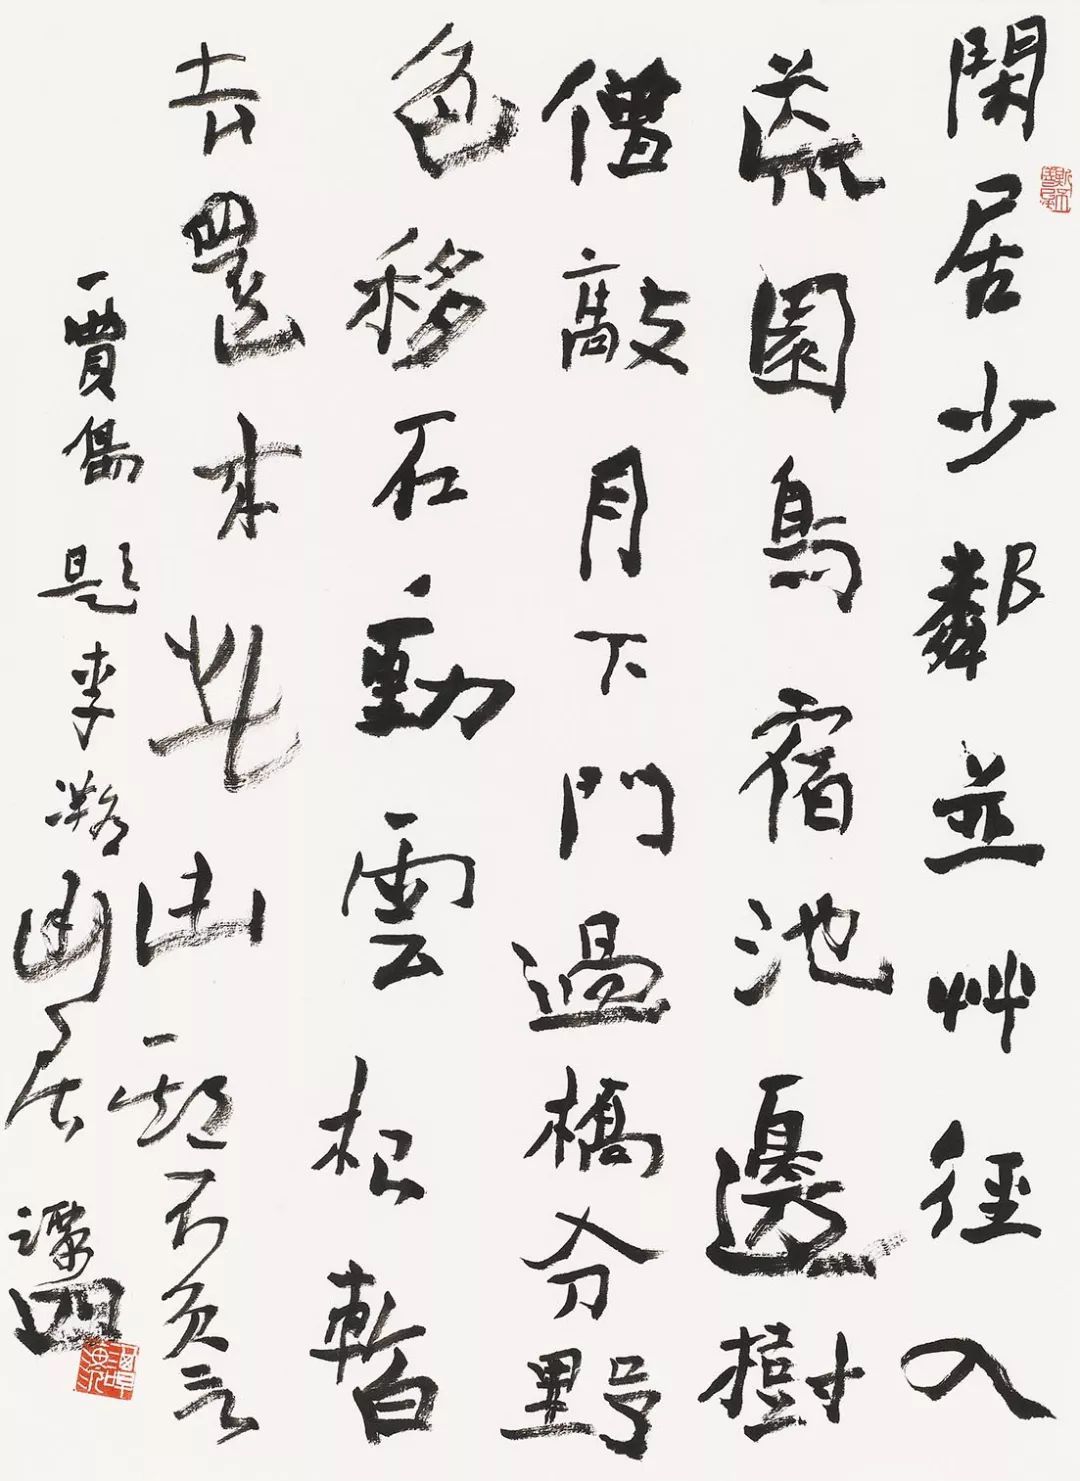 閑居少鄰並艸徑入
荒園鳥宿池邊樹
僧敲月下門過橋分野
色移石動雲根暫
去還來此幽期不負言
賈島題李凝幽居